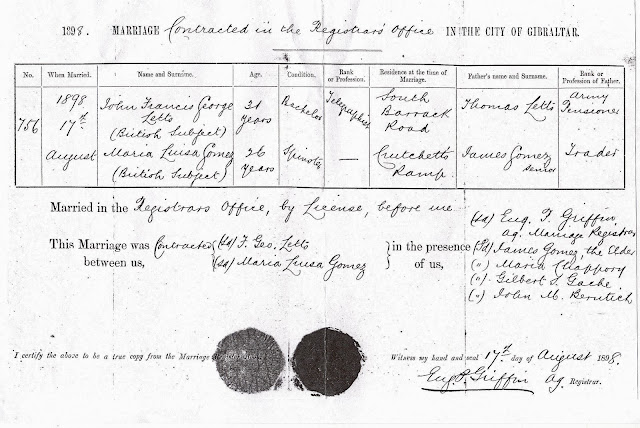 1898. MARRIAGE Contracted in the Registrars' Office IN THE CITY OF GIBRALTAR.
No. When Married. Name and Surname. Age. Condition. Rank or Profession. Residence at the time of Marriage. Father's name and Surname. Rank or Profession of Father.
756 1898 17th August
John Francis George Letts (British Subject) 31 years Bachelor Telegraphist South Barrack Road Thomas Letts Army Pensioner
Maria Luisa Gomez (British Subject) 26 years Spinster — Crutchett's Ramp James Gomez senior Trader
Married in the Registrars Office, by License, before me
(sd) Eug. P. Griffin
Ag. Marriage Registrar
This Marriage was Contracted between us,
(sd) F. Geo. Letts
(sd) Maria Luisa Gomez
in the presence of us,
(sd) James Gomez, the Elder
(") Maria Chappory
(") Gilbert S. Gache
(") John M. Berutich
I certify the above to be a true copy from the Marriage
Witness my hand and seal 17th day of August 1898.
Eug. P. Griffin Ag. Registrar.